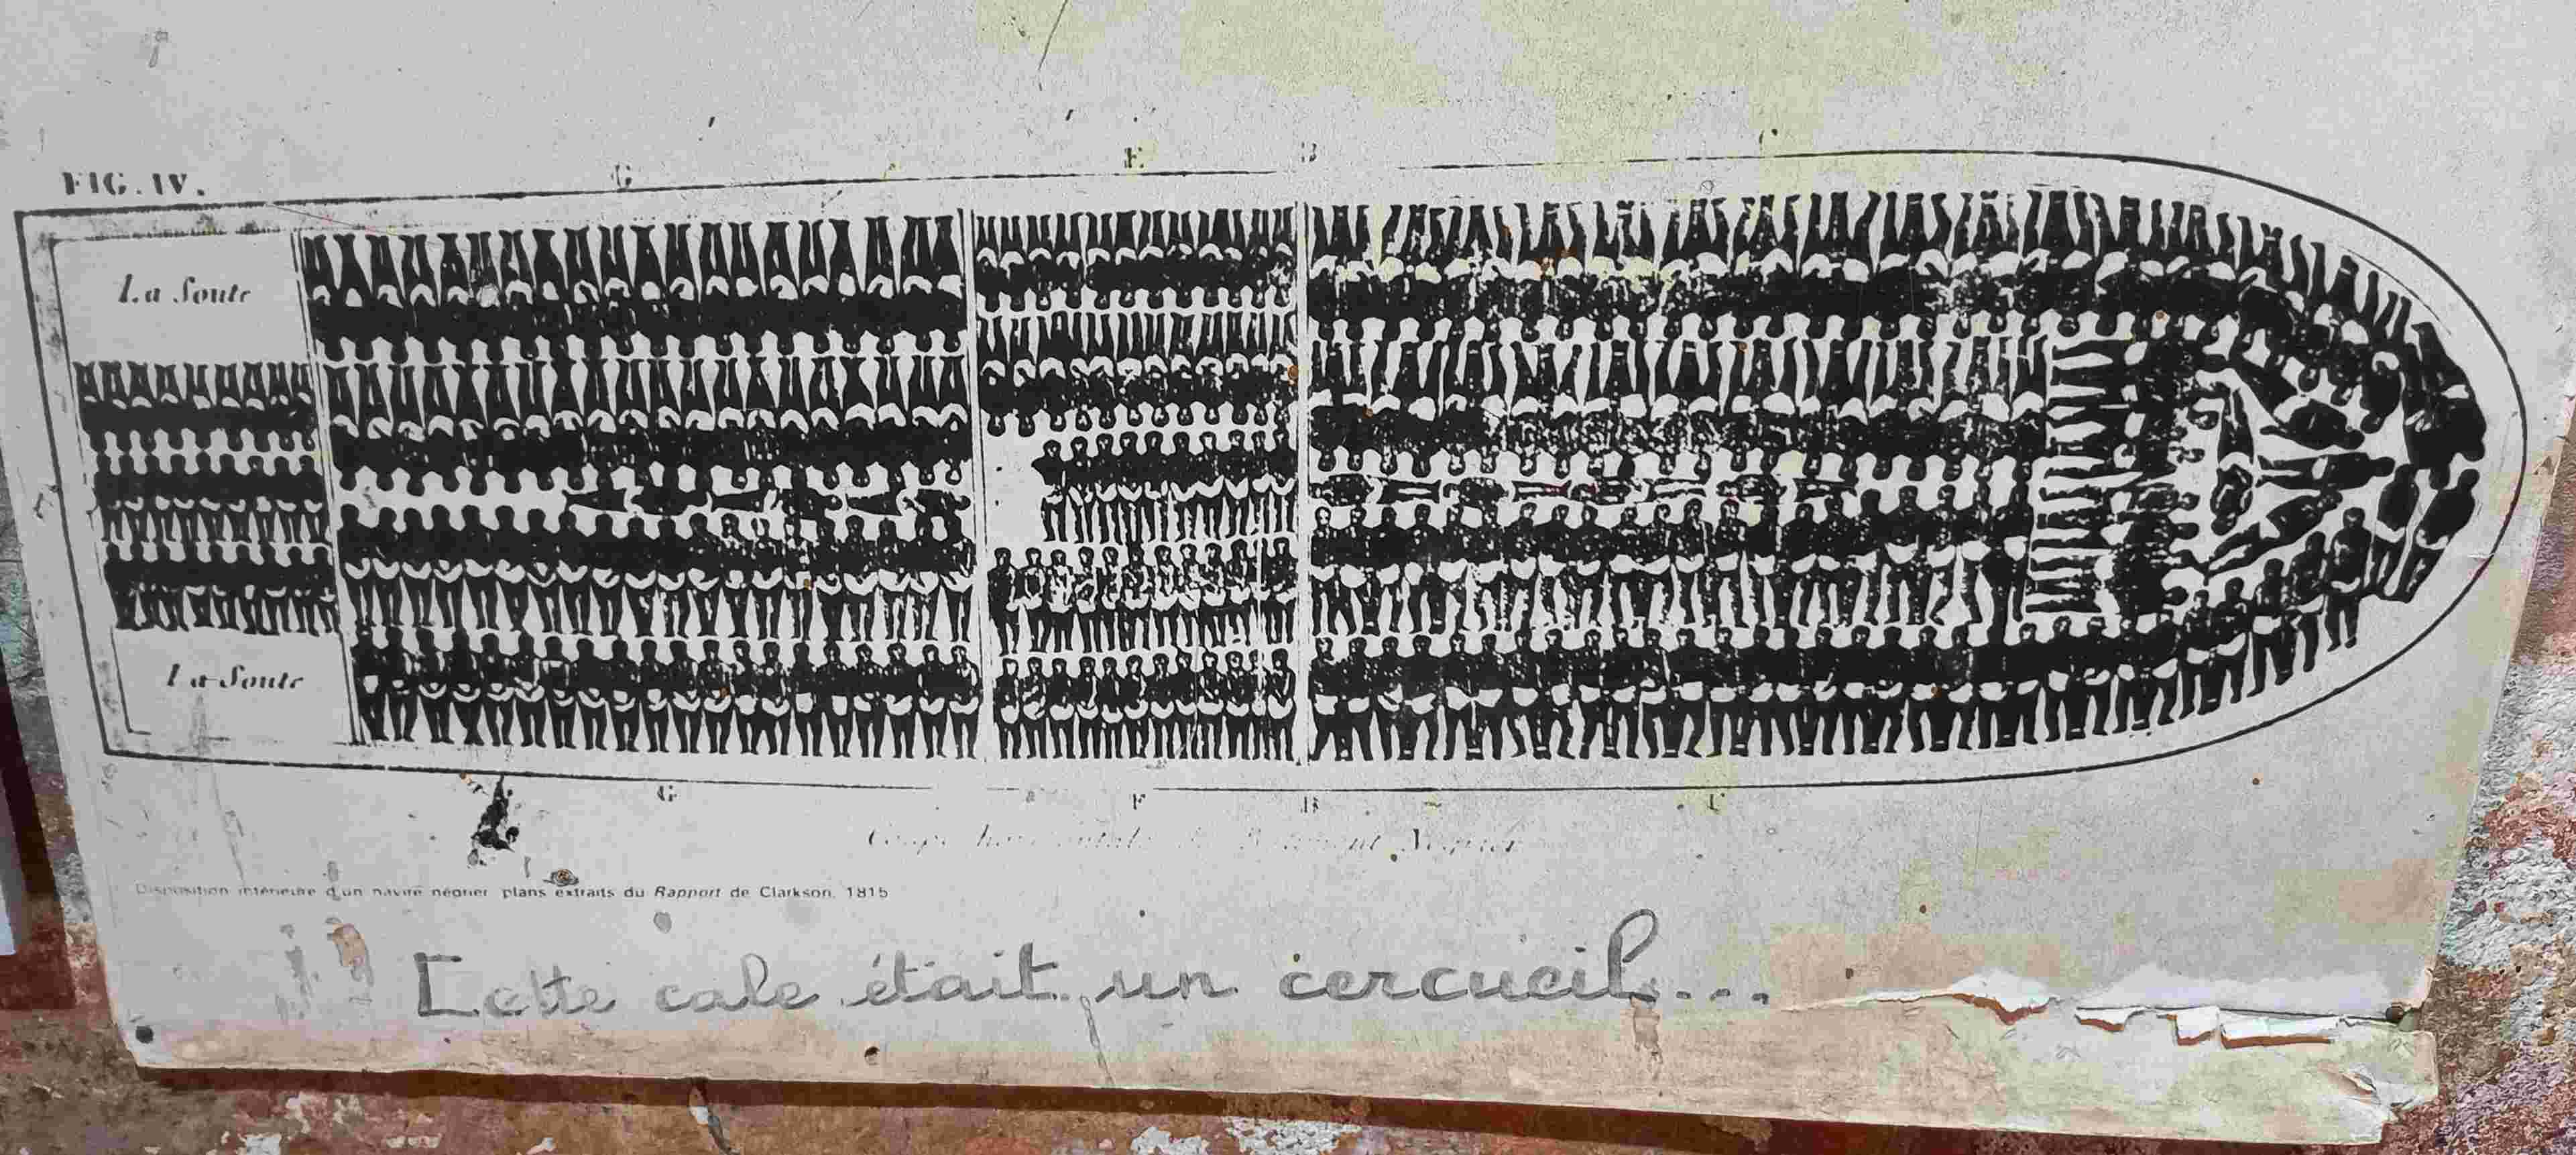 G E B C
FIG. IV.
La Soute
La Soute
G F B C
Coupe horizontale Bâtiment Négrier
Disposition intérieure d'un navire négrier plans extraits du Rapport de Clarkson, 1815
Cette cale était un cercueil...